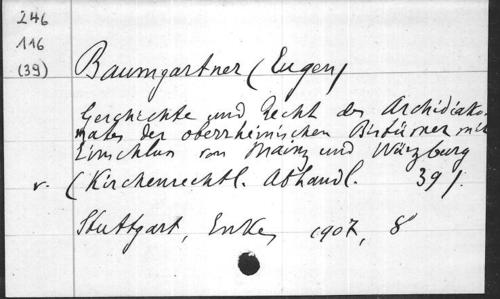 246
116
(39)
Baumgartner (Eugen)
Geschichte und Recht des Archidiako-
nates der oberrheinischen Bistümer mit
Einschluss von Mainz und Würzburg
v. (Kirchenrechtl. Abhandl. 39).
Stuttgart, Enke, 1907, 8°